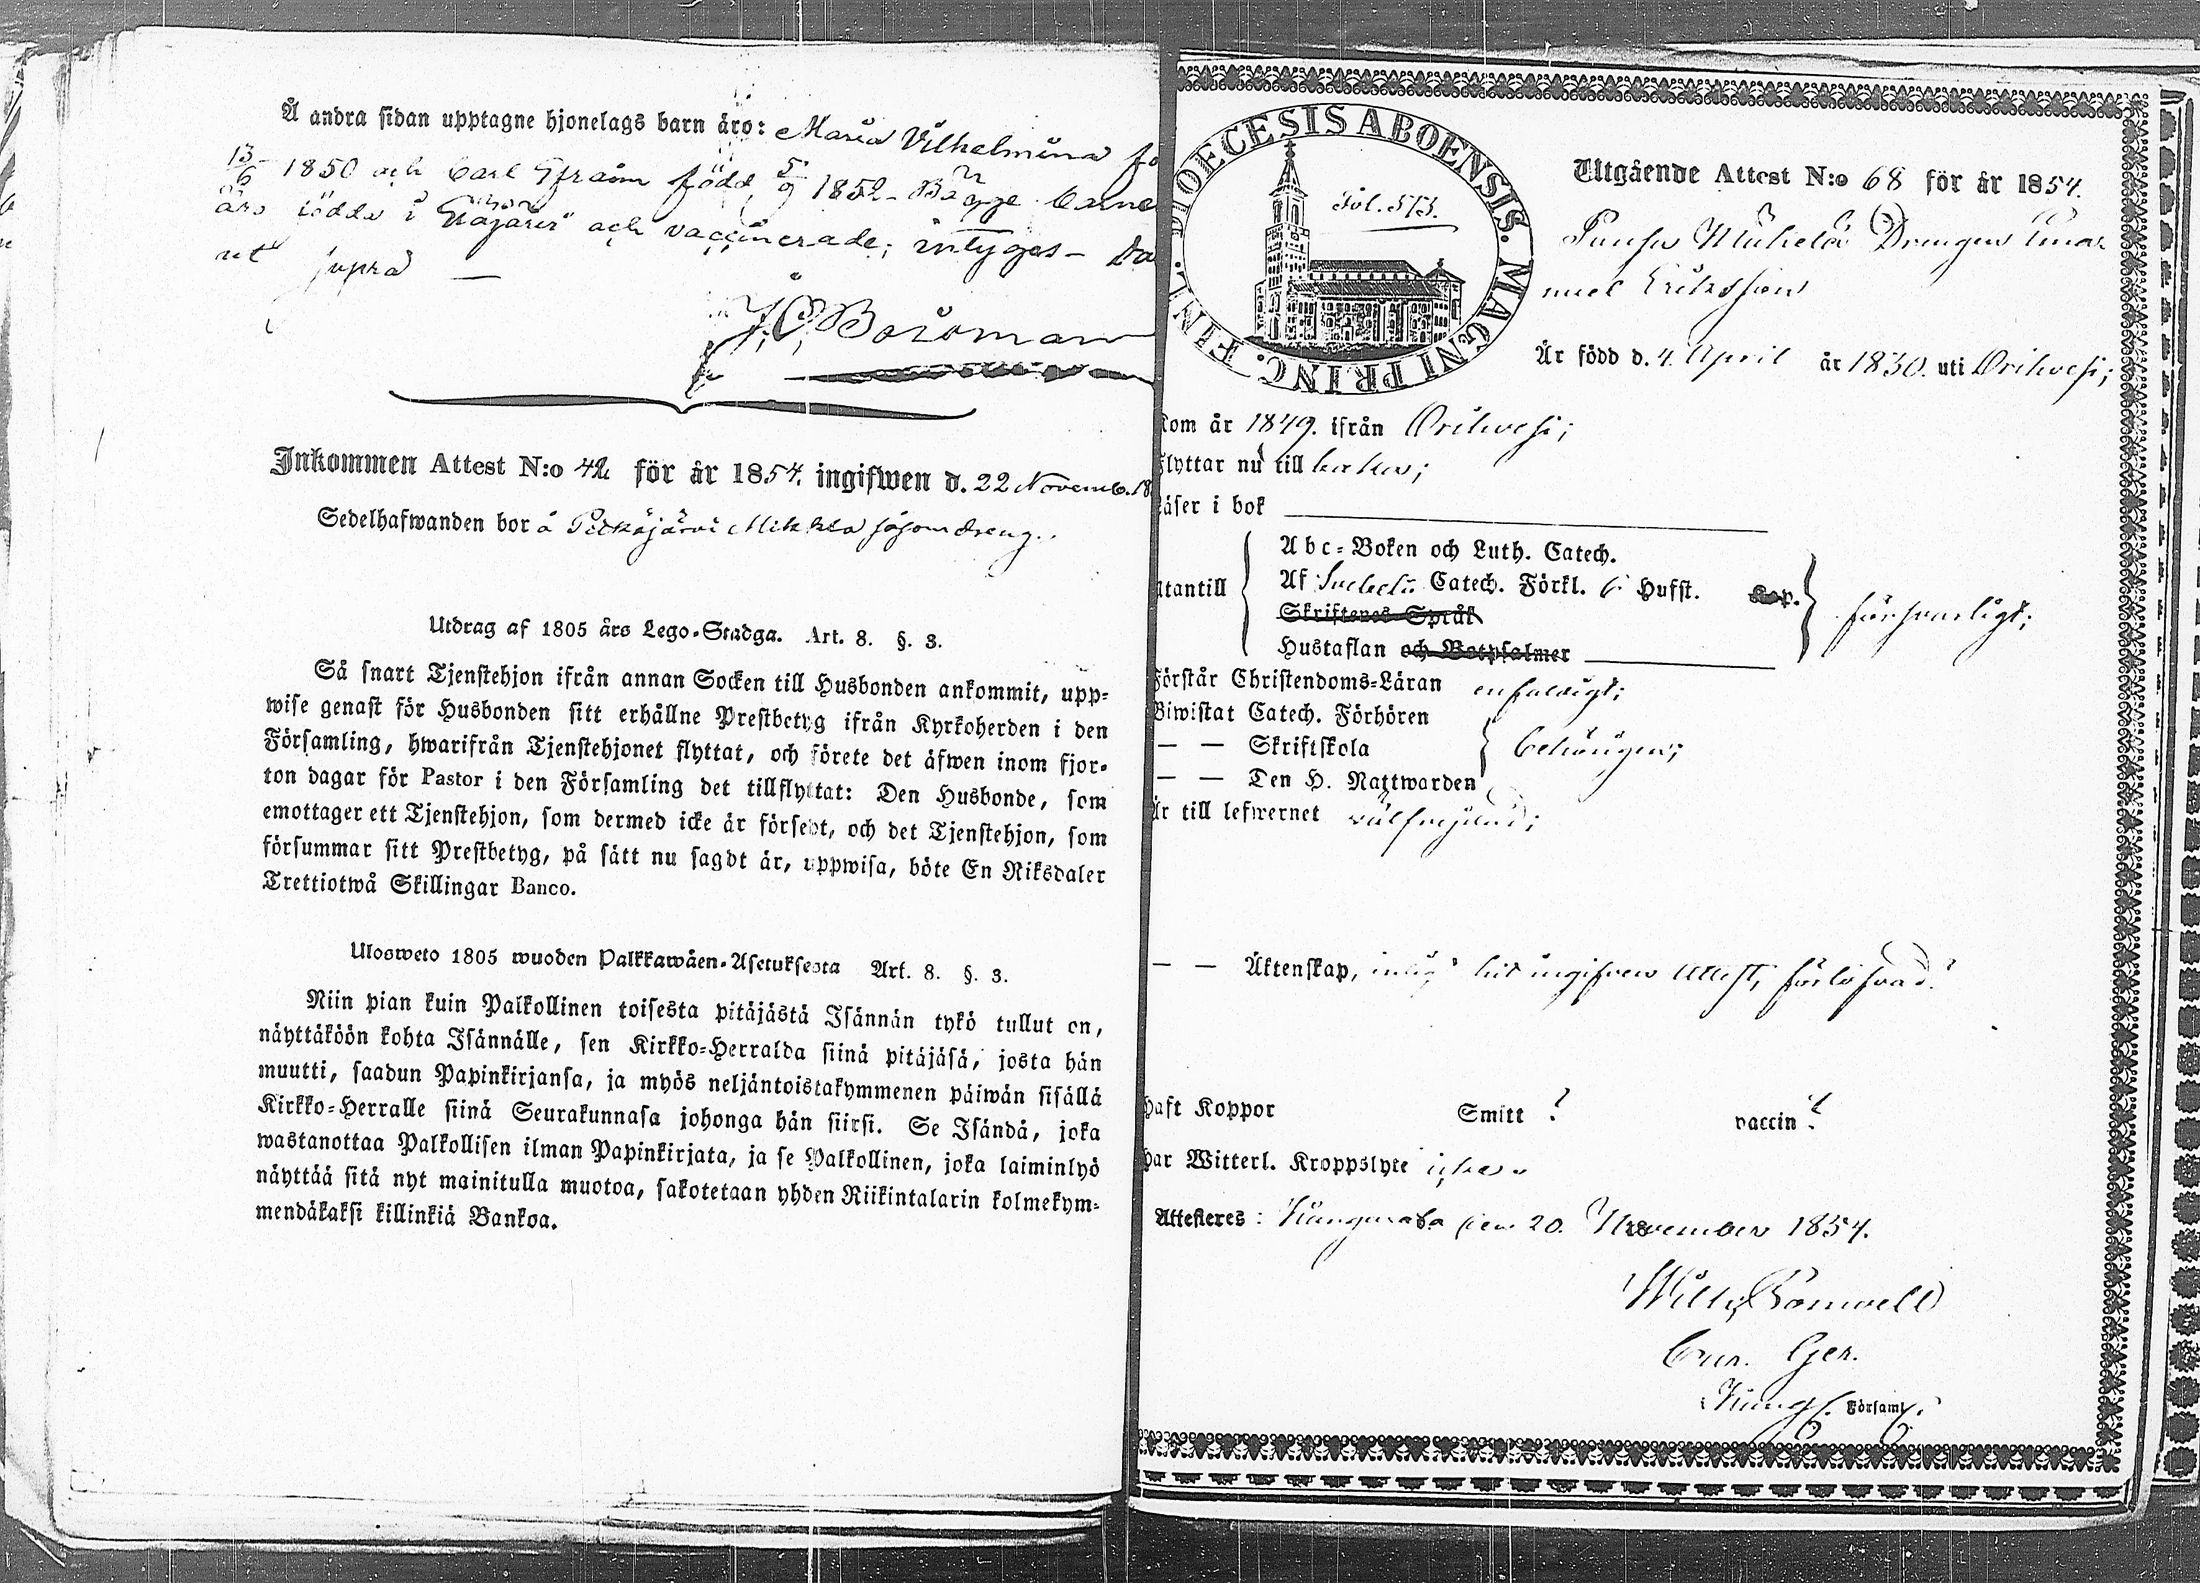 Å andra sidan upptagne hjonelags barn äro: Maria Vilhelmina
13/6 1850 och Carl Efraim född 5/9 1852 - Bägge barnen
äro födda i och vaccinerade; intygas -
ut supra —
J. O. Boroman
Inkommen Attest N:o 42 för år 1854. ingifwen d. 22 Novemb. 18
Sedelhafwanden bor å Pitkäjärvi Mikkla såsom dreng.
Utdrag af 1805 års Lego-Stadga. Art. 8. §. 3.
Så snart Tjenstehjon ifrån annan Socken till Husbonden ankommit, upp-
wise genast för Husbonden sitt erhållne Prestbetyg ifrån Kyrkoherden i den
Församling, hwarifrån Tjenstehjonet flyttat, och förete det äfwen inom fjor-
ton dagar för Pastor i den Församling det tillflyttat: Den Husbonde, som
emottager ett Tjenstehjon, som dermed icke är försedt, och det Tjenstehjon, som
försummar sitt Prestbetyg, på sätt nu sagdt är, uppwisa, böte En Riksdaler
Trettiotwå Skillingar Banco.
Ulosweto 1805 wuoden Palkkawäen-Asetuksesta Art. 8. §. 3.
Niin pian kuin Palkollinen toisesta pitäjästä Isännän tykö tullut on,
näyttäköön kohta Isännälle, sen Kirkko-Herralda siinä pitäjäsä, josta hän
muutti, saadun Papinkirjansa, ja myös neljäntoistakymmenen päiwän sisällä
Kirkko-Herralle siinä Seurakunnasa johonga hän siirsi. Se Isändä, joka
wastanottaa Palkollisen ilman Papinkirjata, ja se Palkollinen, joka laiminlyö
näyttää sitä nyt mainitulla muotoa, sakotetaan yhden Riikintalarin kolmekym-
mendäkaksi killinkiä Bankoa.
DIOECESIS ABOENSIS. MAGNI PRINC. FINL.
Fol. 573.
Utgående Attest N:o 68 för år 1854.
Mikkelä Drengen Ema-
nuel Eriksson
Är född d. 4. April år 1830. uti Orihvesi;
Kom år 1849. ifrån Orihvesi;
Flyttar nu till
Läser i bok
Utantill
Abc-Boken och Luth. Catech.
Af Svebelii Catech. Förkl. 6 Hufst. Kap.
Skriftenes Språk
Hustaflan och Botpsalmer
försvarligt;
Förstår Christendoms-Läran enfaldigt;
Biwistat Catech. Förhören
— — Skriftskola
behörigen;
— — Den H. Nattwarden
Är till lefwernet välfrejdad;
— — Äktenskap, enligt hit ingifven Attest, förlofvad.
Haft Koppor Smitt ? vaccin ?
Har Witterl. Kroppslyte icke.
Attesteres: Kangasala den 20. November 1854.
Romvell
Cur. Ger.
Kang. Församl.